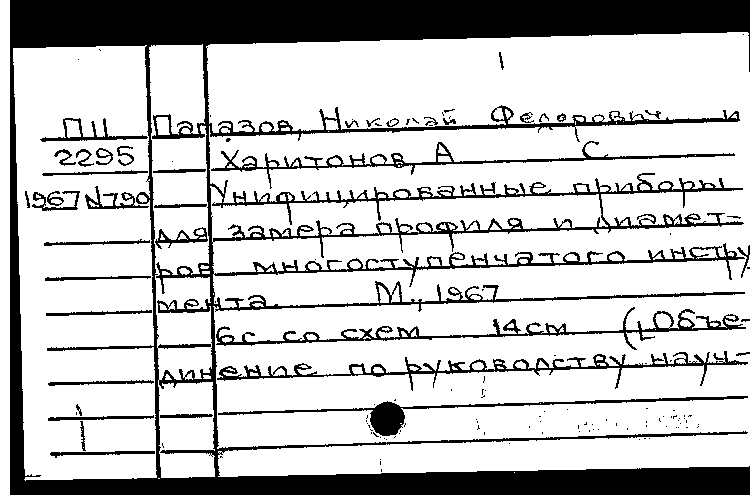 1
П11 Папазов, Николай Федорович и
2295 Харитонов, А С
1967 N790 Унифицированные приборы
для замера профиля и диамет=
ров многоступенчатого инстру
мента. М., 1967
6с. со схем 14см ([Объе-
динение по руководству науч-